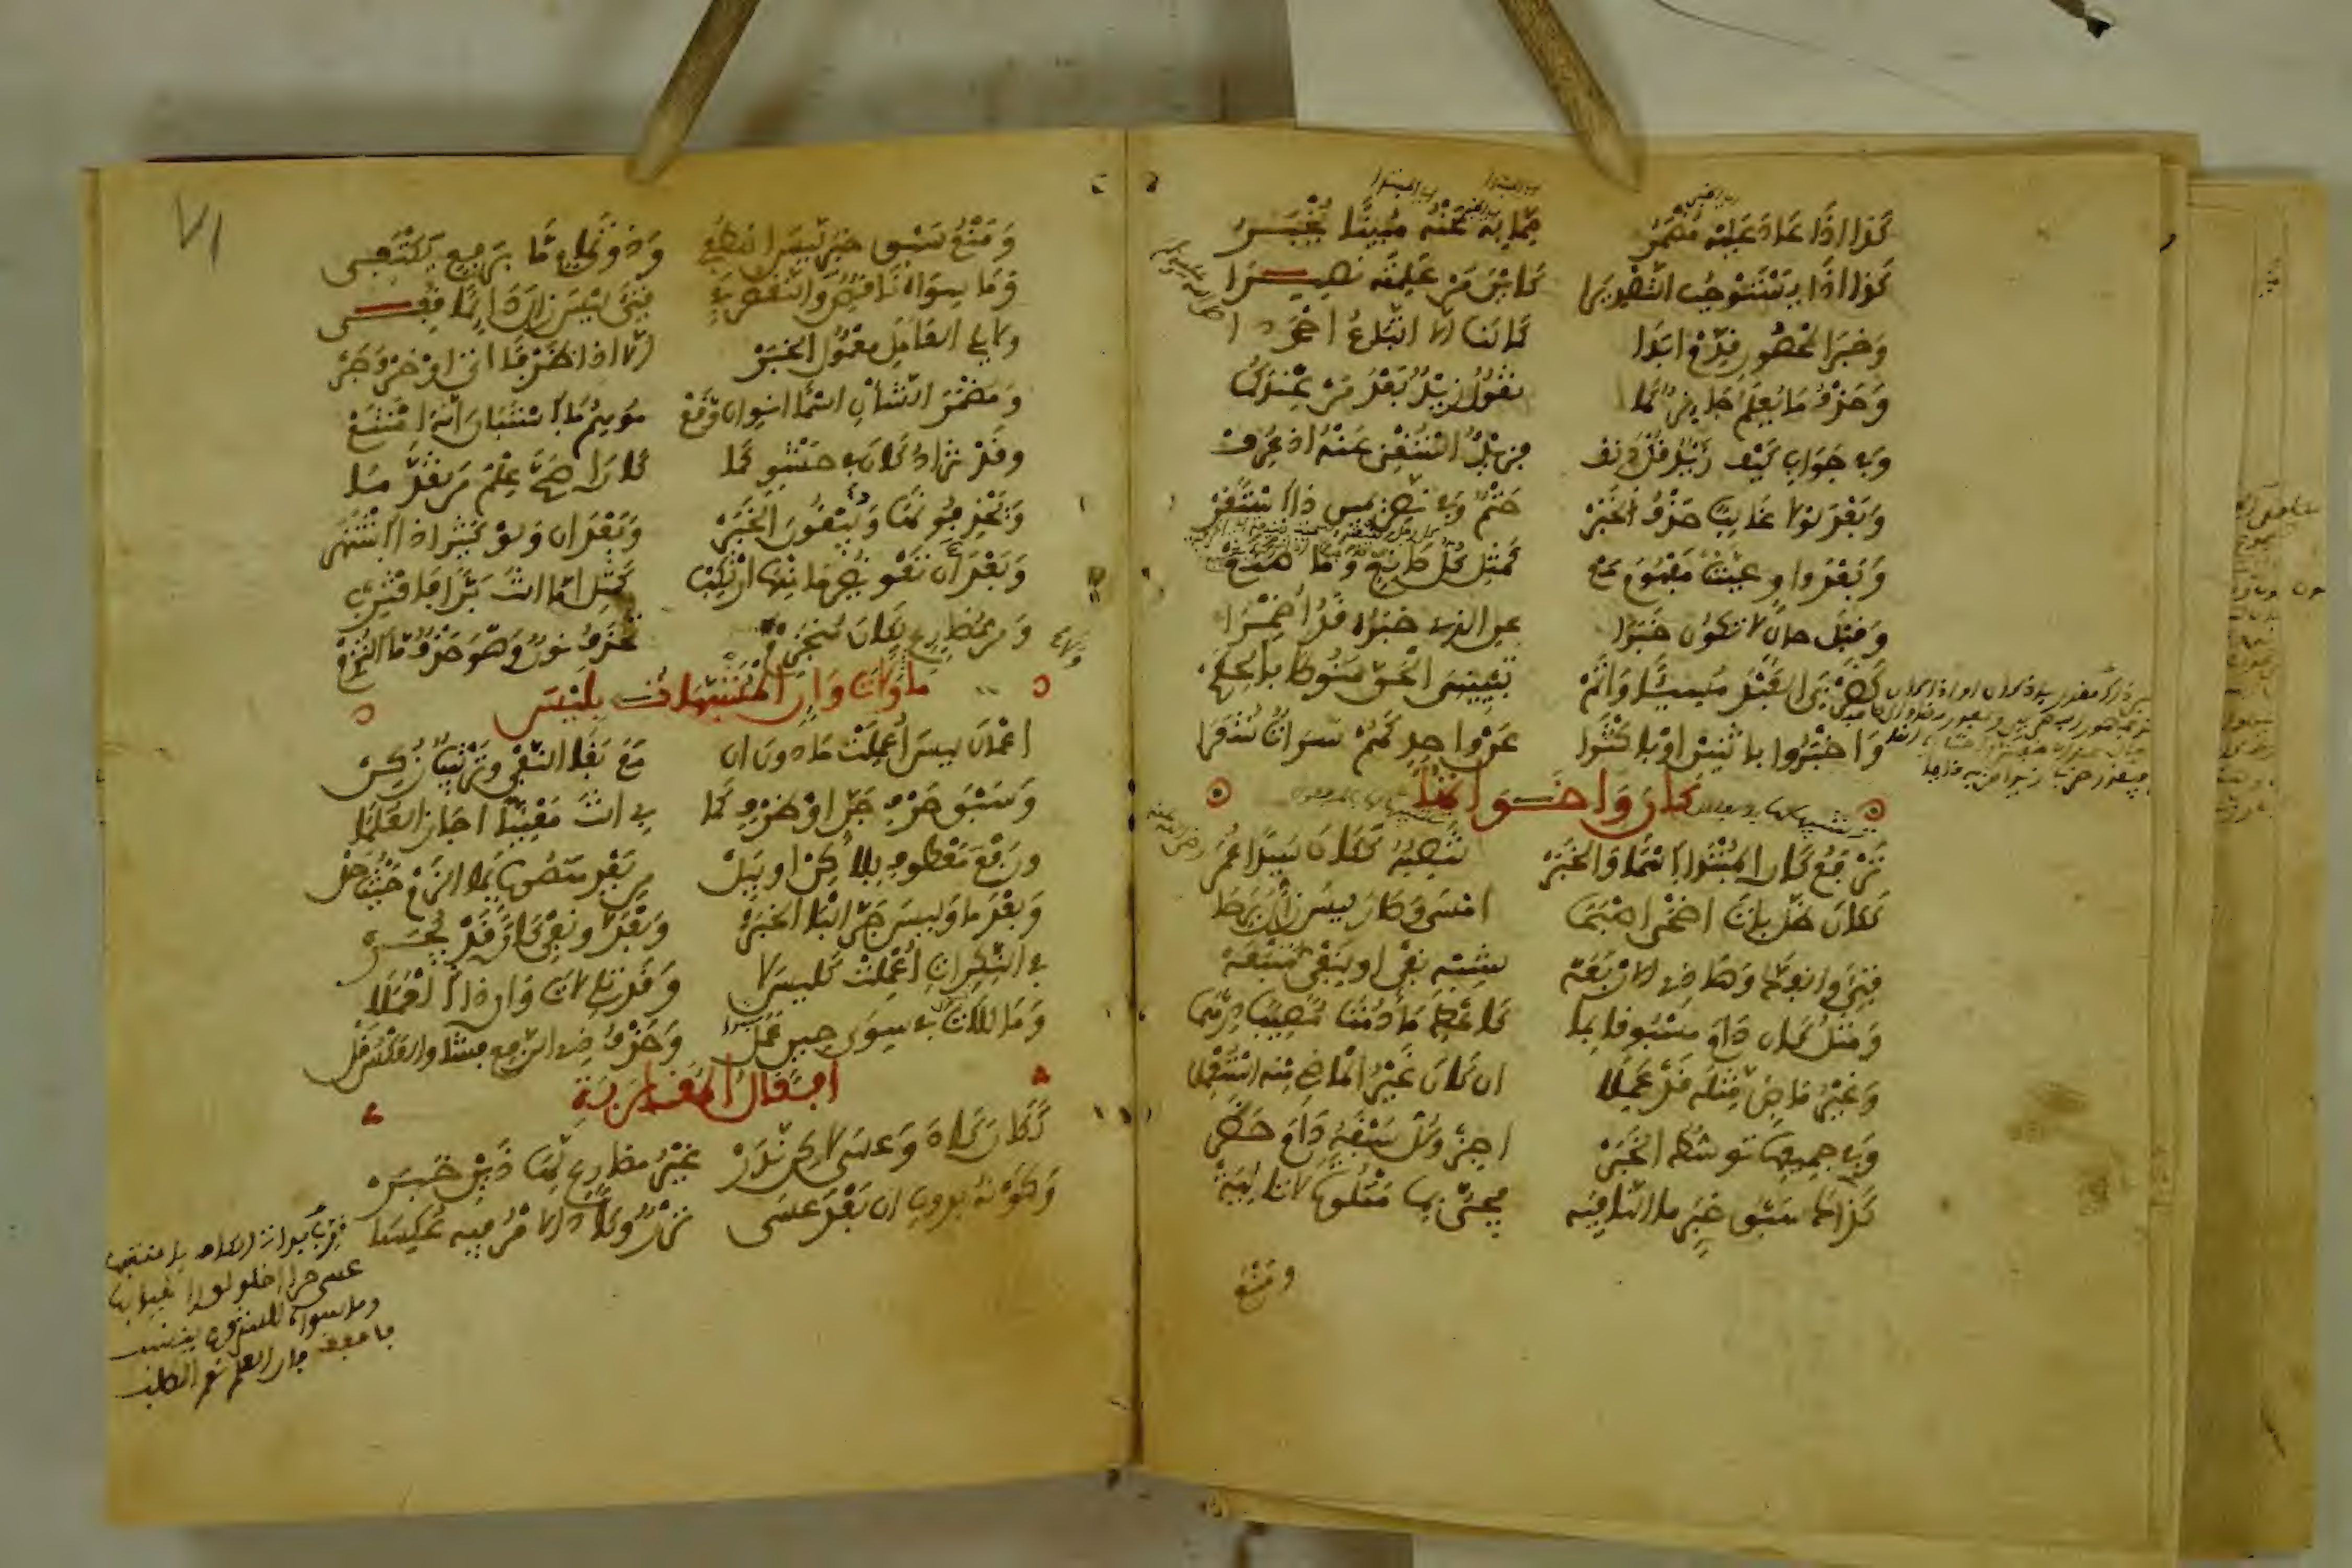 كَذَا اذَا عَادَ عَلَيْهِ مُضْمَرُ مِمَّا بِهِ عَنْهُ مُبِينًا يُخْبَرُ
كَذَا اذَا يَسْتَوْجِبُ التَّصْدِيرَا كَأَيْنَ مَنْ عَلِمْتَهُ نَصِيرَا
وَخَبَرَ الْمَحْصُورِ قَدِّمْ ابَدَا كَمَا لَنَا الَّا اتِّبَاعُ احْمَدَا
وَحَذْفُ مَا يُعْلَمُ جَايِزٌ كَمَا تَقُولُ زَيْدٌ بَعْدَ مَنْ عِنْدَكُمَا
وَفِي جَوَابِ كَيْفَ زَيْدٌ قُلْ دَنِفْ فَزَيْدٌ اسْتُغْنِيَ عَنْهُ اذْ عُرِفْ
وَبَعْدَ لَوْلَا غَالِبًا حَذْفُ الْخَبَرْ حَتْمٌ وَفِي نَصِّ يَمِينٍ ذَا اسْتَقَرْ
وَبَعْدَ وَاوٍ عَيَّنَتْ مَفْهُومَ مَعْ كَمِثْلِ كُلُّ صَانِعٍ وَمَا صَنَعْ
وَقَبْلَ حَالٍ لَا تَكُونُ خَبَرَا عَنِ الَّذِي خَبَرُهُ قَدْ أُضْمِرَا
كَضَرْبِيَ الْعَبْدَ مُسِيئًا وَأَتَمْ تَبْيِينِيَ الْحَقَّ مَنُوطًا بِالْحِكَمْ
وَاخْبَرُوا بِاثْنَيْنِ اوْ بِاكْثَرَا عَنْ وَاحِدٍ كَهُمْ سَرَاةٌ شُعَرَا
كَانَ وَاخَوَاتُهَا
تَرْفَعُ كَانَ الْمُبْتَدَا اسْمًا وَالْخَبَرْ تَنْصِبُهُ كَكَانَ سَيِّدًا عُمَرْ
كَكَانَ ظَلَّ بَاتَ اضْحَى اصْبَحَا امْسَى وَصَارَ لَيْسَ زَالَ بَرِحَا
فَتِئَ وَانْفَكَّ وَهَذِي الْارْبَعَهْ لِشِبْهِ نَفْيٍ اوْ لِنَفْيٍ مُتْبَعَهْ
وَمِثْلُ كَانَ دَامَ مَسْبُوقًا بِمَا كَأَعْطِ مَا دُمْتَ مُصِيبًا دِرْهَمَا
وَغَيْرُ مَاضٍ مِثْلَهُ قَدْ عَمِلَا انْ كَانَ غَيْرُ الْمَاضِ مِنْهُ اسْتُعْمِلَا
وَفِي جَمِيعِهَا تَوَسُّطَ الْخَبَرْ اجِزْ وَكُلٌّ سَبْقَهُ دَامَ حَظَرْ
كَذَاكَ سَبْقُ خَبَرٍ مَا النَّافِيَهْ فَجِئْ بِهَا مَتْلُوَّةً لَا تَالِيَهْ
وَمَنْعُ
وَمَنْعُ سَبْقِ خَبَرٍ لَيْسَ اصْطُفِي وَذُو تَمَامٍ مَا بِرَفْعٍ يَكْتَفِي
وَمَا سِوَاهُ نَاقِصٌ وَالنَّقْصُ فِي فَتِئَ لَيْسَ زَالَ دَائِمًا قُفِي
وَلَا يَلِي الْعَامِلَ مَعْمُولُ الْخَبَرْ الَّا اذَا ظَرْفًا اتَى اوْ حَرْفَ جَرْ
وَمُضْمَرَ الشَّانِ اسْمًا انْوِ انْ وَقَعْ مُوهِمُ مَا اسْتَبَانَ أَنَّهُ امْتَنَعْ
وَقَدْ تُزَادُ كَانَ فِي حَشْوٍ كَمَا كَانَ اصَحَّ عِلْمَ مَنْ تَقَدَّمَا
وَيَحْذِفُونَهَا وَيُبْقُونَ الْخَبَرْ وَبَعْدَ انْ وَلَوْ كَثِيرًا ذَا اشْتَهَرْ
وَبَعْدَ أَنْ تَعْوِيضُ مَا عَنْهَا ارْتُكِبْ كَمِثْلِ امَّا انْتَ بَرًّا فَاقْتَرِبْ
وَمِنْ مُضَارِعٍ لِكَانَ مُنْجَزِمْ تُحْذَفُ نُونٌ وَهْوَ حَذْفٌ مَا الْتُزِمْ
مَا وَلَا وَلَاتَ وَإِنِ الْمُشَبَّهَاتُ بِلَيْسَ
اعْمَالَ لَيْسَ أُعْمِلَتْ مَا دُونَ انْ مَعَ بَقَا النَّفْيِ وَتَرْتِيبٍ زُكِنْ
وَسَبْقَ حَرْفِ جَرٍّ اوْ ظَرْفٍ كَمَا بِي انْتَ مَعْنِيًّا اجَازَ الْعُلَمَا
وَرَفْعَ مَعْطُوفٍ بِلَكِنْ اوْ بِبَلْ مِنْ بَعْدِ مَنْصُوبٍ بِمَا الْزَمْ حَيْثُ حَلْ
وَبَعْدَ مَا وَلَيْسَ جَرَّ الْبَا الْخَبَرْ وَبَعْدَ لَا وَنَفْيِ كَانَ قَدْ يُجَرْ
فِي النَّكِرَاتِ أُعْمِلَتْ كَلَيْسَ لَا وَقَدْ تَلِي لَاتَ وَانْ ذَا الْعَمَلَا
وَمَا لِلَاتَ فِي سِوَى حِينٍ عَمَلْ وَحَذْفُ ذِي الرَّفْعِ فَشَا وَالْعَكْسُ قَلْ
افْعَالُ الْمُقَارَبَةِ
كَكَانَ كَادَ وَعَسَى لَكِنْ نَدَرْ غَيْرُ مُضَارِعٍ لِهَذَيْنِ خَبَرْ
وَكَوْنُهُ بِدُونِ انْ بَعْدَ عَسَى نَزْرٌ وَكَادَ الْامْرُ فِيهِ عُكِسَا